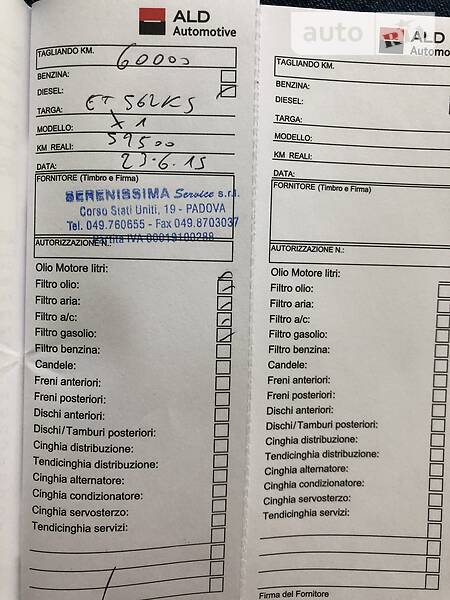 ALD
Automotive
TAGLIANDO KM. 60000
BENZINA:
DIESEL:
TARGA: ET562KS
MODELLO: X1
KM REALI: 59500
DATA: 23.6.15
FORNITORE (Timbro e Firma)
SERENISSIMA Service s.r.l.
Corso Stati Uniti, 19 - PADOVA
Tel. 049.760655 - Fax 049.8703037
Partita IVA 00019100288
AUTORIZZAZIONE N.:
Olio Motore litri:
Filtro olio:
Filtro aria:
Filtro a/c:
Filtro gasolio:
Filtro benzina:
Candele:
Freni anteriori:
Freni posteriori:
Dischi anteriori:
Dischi/Tamburi posteriori:
Cinghia distribuzione:
Tendicinghia distribuzione:
Cinghia alternatore:
Cinghia condizionatore:
Cinghia servosterzo:
Tendicinghia servizi:
auto
ALD
Automo
TAGLIANDO KM.
BENZINA:
DIESEL:
TARGA:
MODELLO:
KM REALI:
DATA:
FORNITORE (Timbro e Firma)
AUTORIZZAZIONE N.:
Olio Motore litri:
Filtro olio:
Filtro aria:
Filtro a/c:
Filtro gasolio:
Filtro benzina:
Candele:
Freni anteriori:
Freni posteriori:
Dischi anteriori:
Dischi/Tamburi posteriori:
Cinghia distribuzione:
Tendicinghia distribuzione:
Cinghia alternatore:
Cinghia condizionatore:
Cinghia servosterzo:
Tendicinghia servizi:
Firma del Fornitore